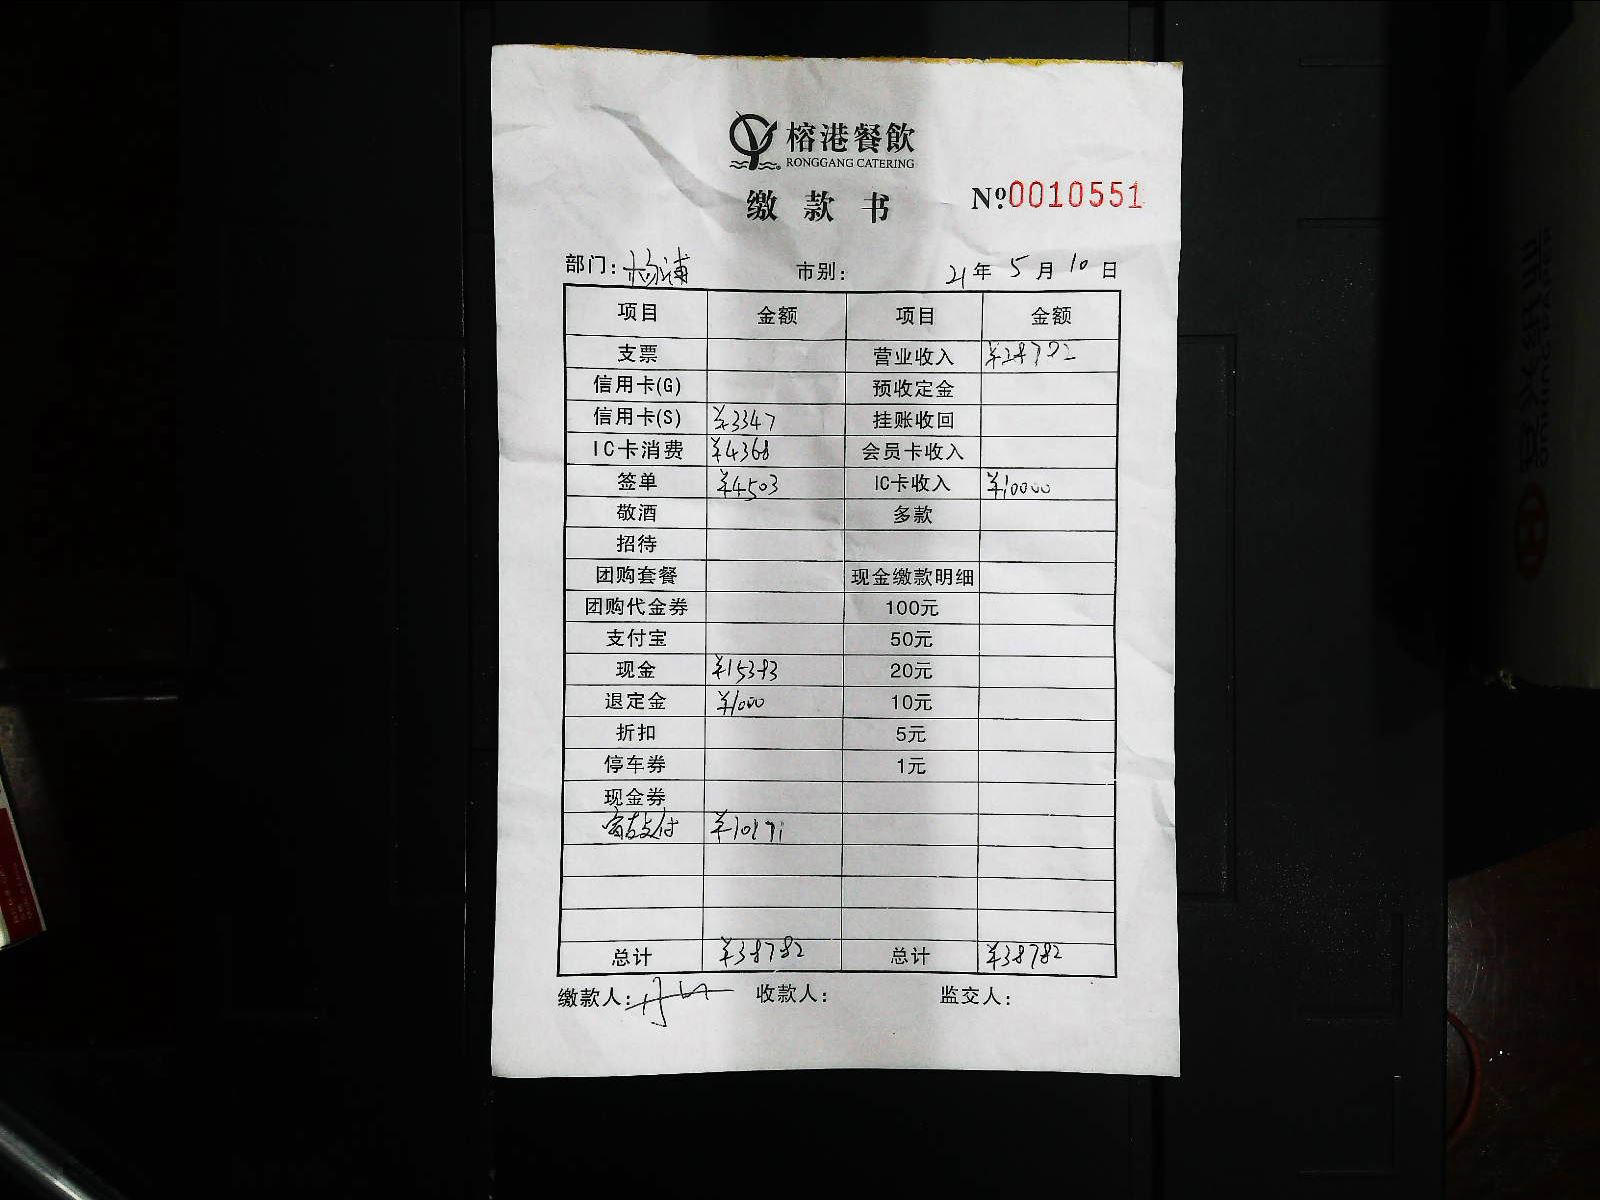 榕港餐飲
RONGGANG CATERING
缴款书
Nº0010551
部门: 杨浦 市别: 21年 5月 10日
项目 金额 项目 金额
支票 营业收入 ¥28782
信用卡(G) 预收定金
信用卡(S) ¥3347 挂账收回
IC卡消费 ¥4368 会员卡收入
签单 ¥4503 IC卡收入 ¥10000
敬酒 多款
招待
团购套餐 现金缴款明细
团购代金券 100元
支付宝 50元
现金 ¥15393 20元
退定金 ¥1000 10元
折扣 5元
停车券 1元
现金券
富友支付 ¥10171
总计 ¥38782 总计 ¥38782
缴款人: 收款人: 监交人: